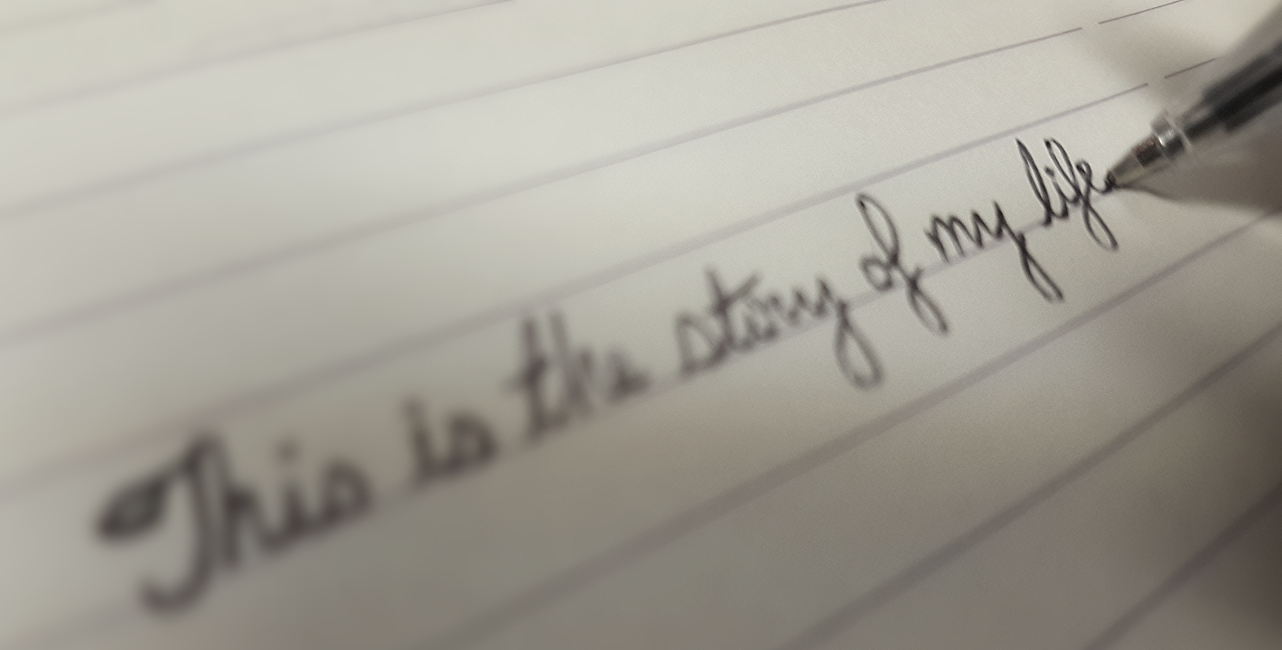 This is the story of my life